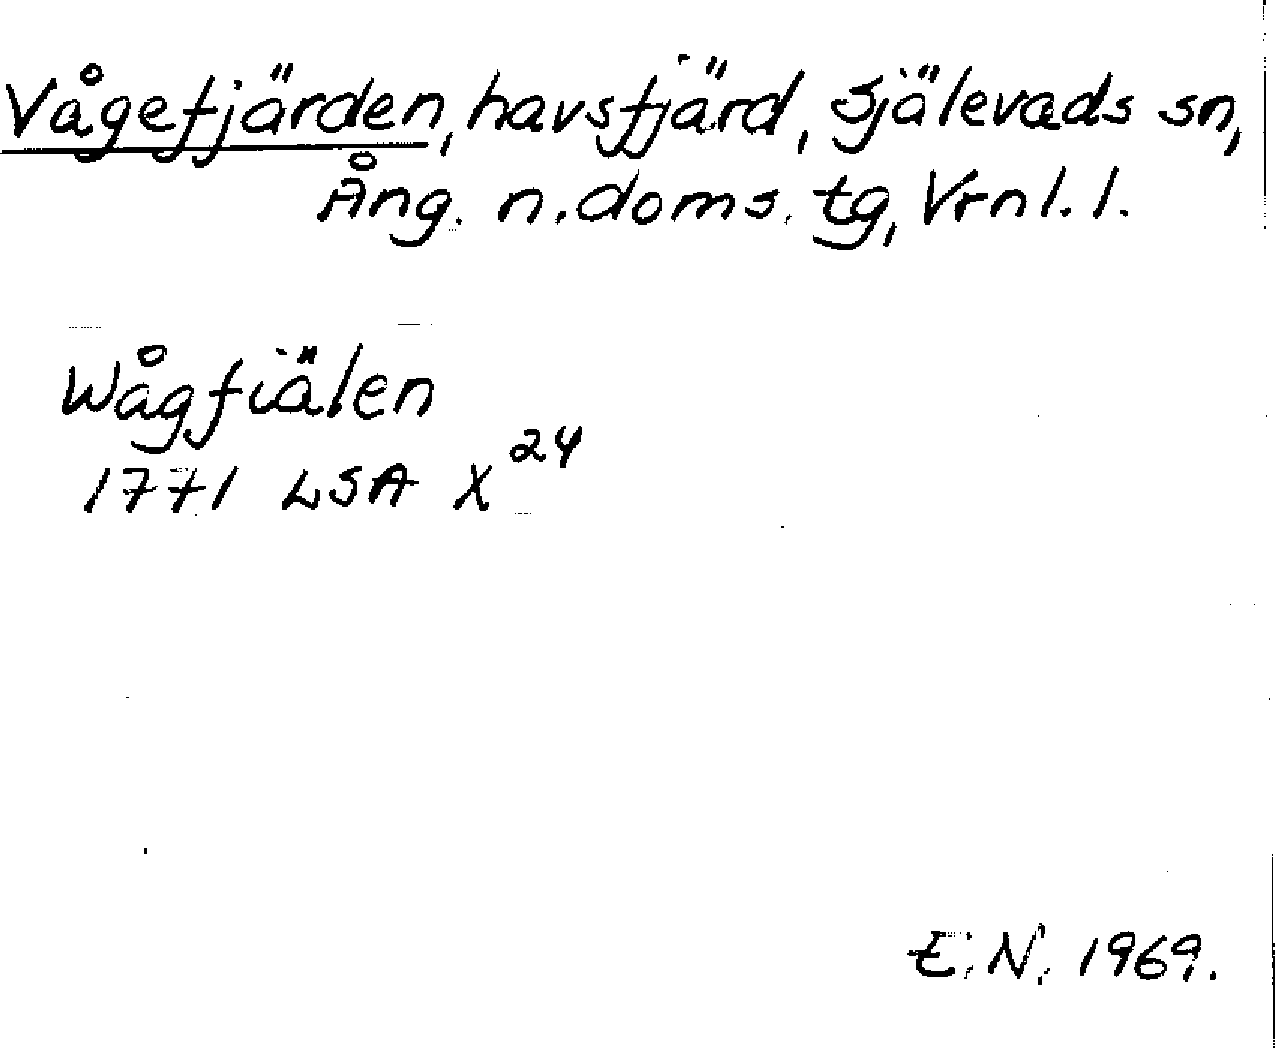 Vågefjärden, havsfjärd, Själevads sn,
Ång. n. doms. tg, Vrnl. l.
Wågfiälen
1771 LSA X 24
E.N. 1969.